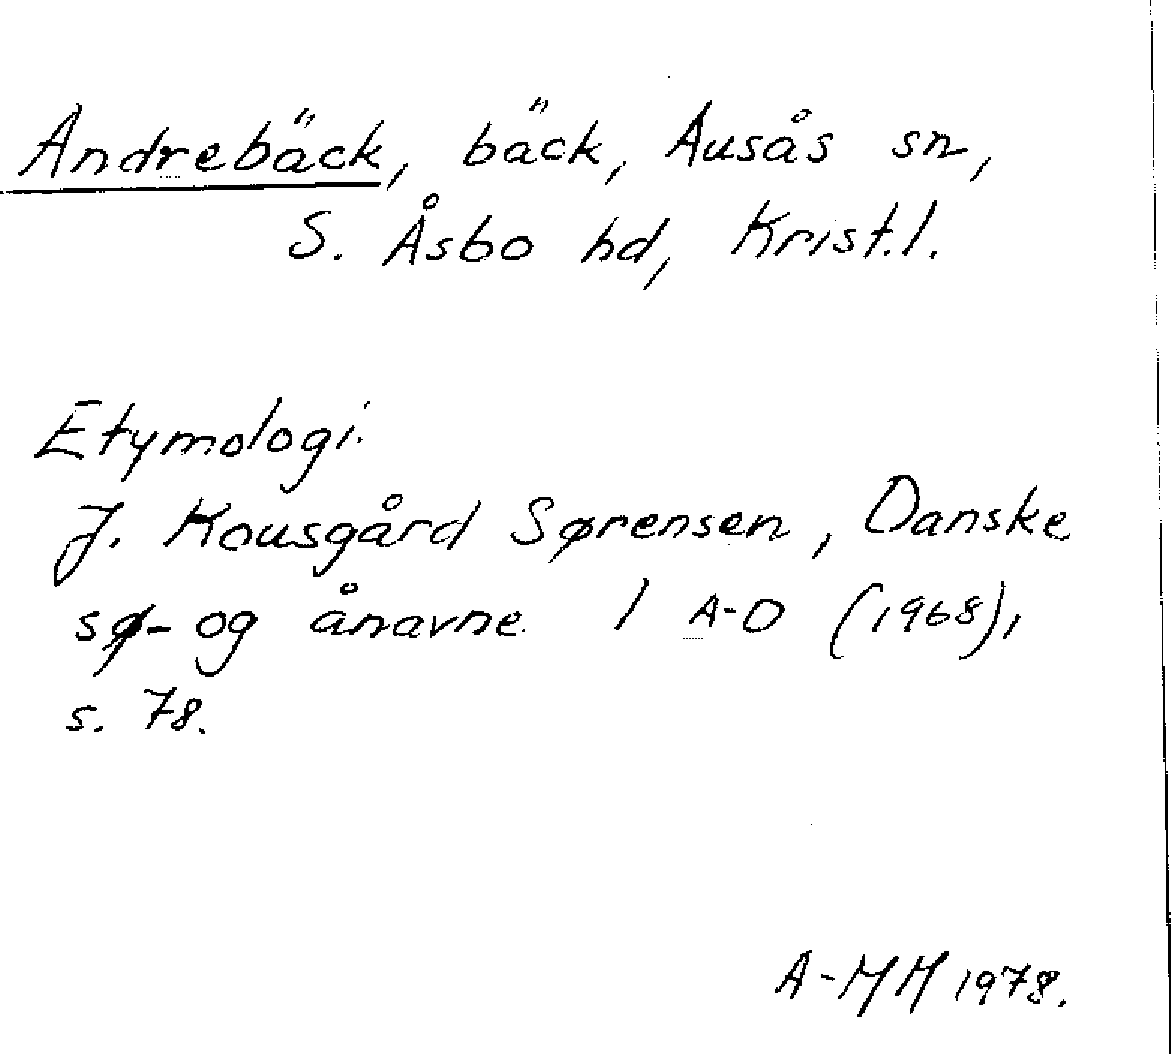 Andrebäck, bäck, Ausås sn,
S. Åsbo hd, Krist.l.
Etymologi.
J. Kousgård Sørensen, Danske
sø- og ånavne 1 A-D (1968),
s. 78.
A-MH 1978.